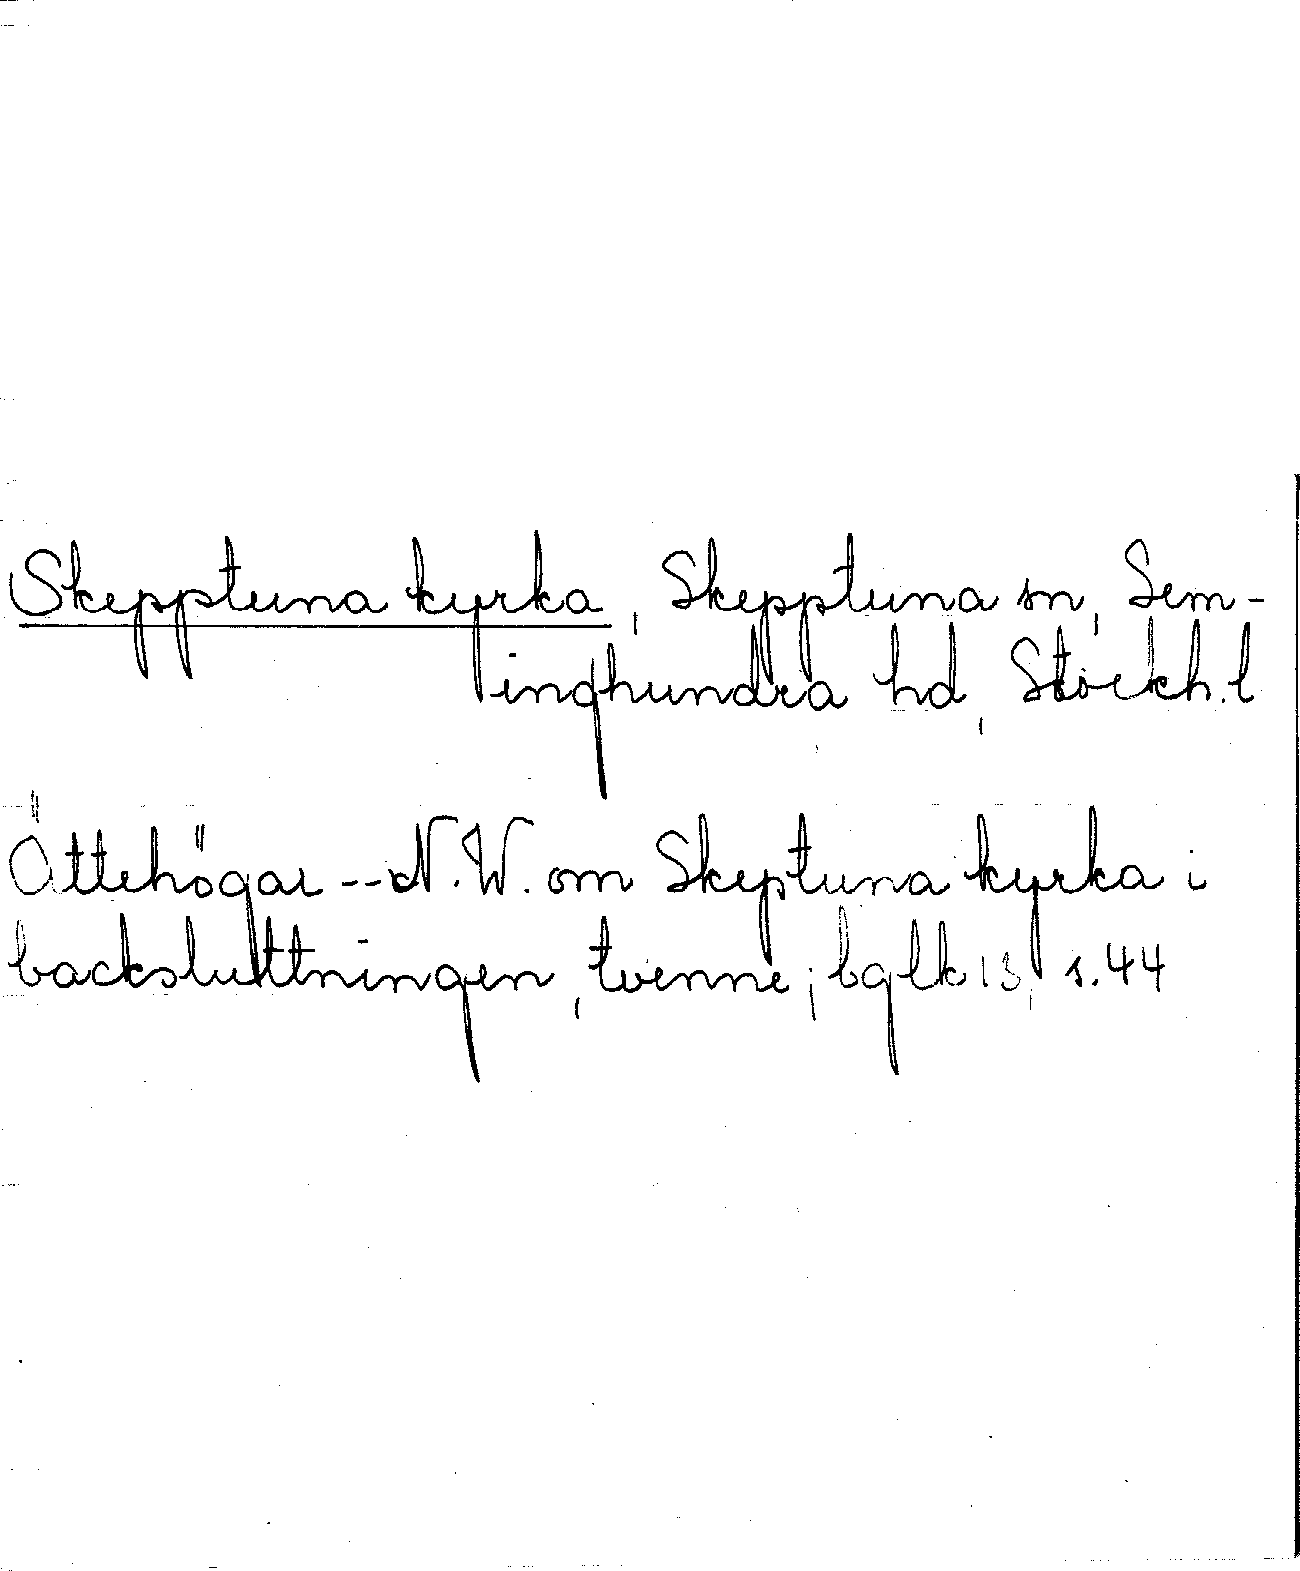 Skepptuna kyrka, Skepptuna sn, Sem-
inghundra hd, Stockh.l
Ättehögar -- N.W. om Skeptuna kyrka i
backsluttningen, tvenne; bglk 13, s.44